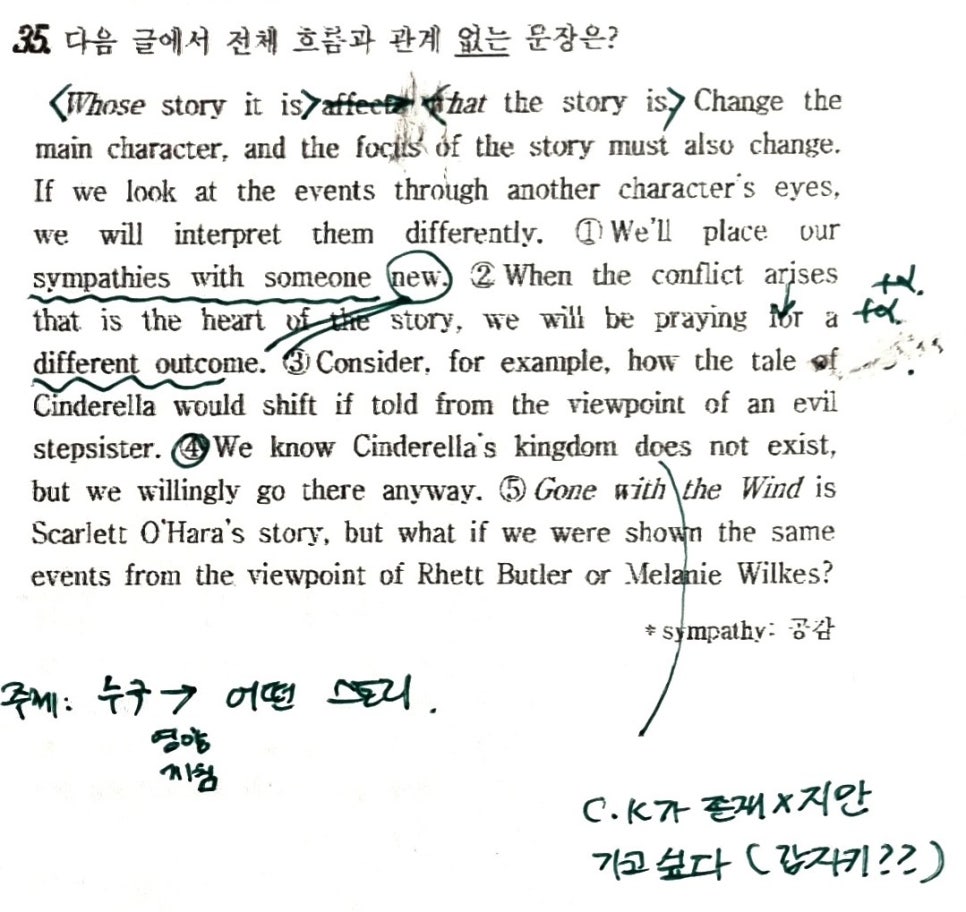 35. 다음 글에서 전체 흐름과 관계 없는 문장은?
Whose story it is affects what the story is. Change the
main character, and the focus of the story must also change.
If we look at the events through another character's eyes,
we will interpret them differently. ① We'll place our
sympathies with someone new. ② When the conflict arises
that is the heart of the story, we will be praying for a
different outcome. ③ Consider, for example, how the tale of
Cinderella would shift if told from the viewpoint of an evil
stepsister. ④ We know Cinderella's kingdom does not exist,
but we willingly go there anyway. ⑤ Gone with the Wind is
Scarlett O'Hara's story, but what if we were shown the same
events from the viewpoint of Rhett Butler or Melanie Wilkes?
* sympathy: 공감
주제: 누구 → 어떤 스토리.
영향
C.K가 존재 X 지안
가고 싶다 (갑자기??)